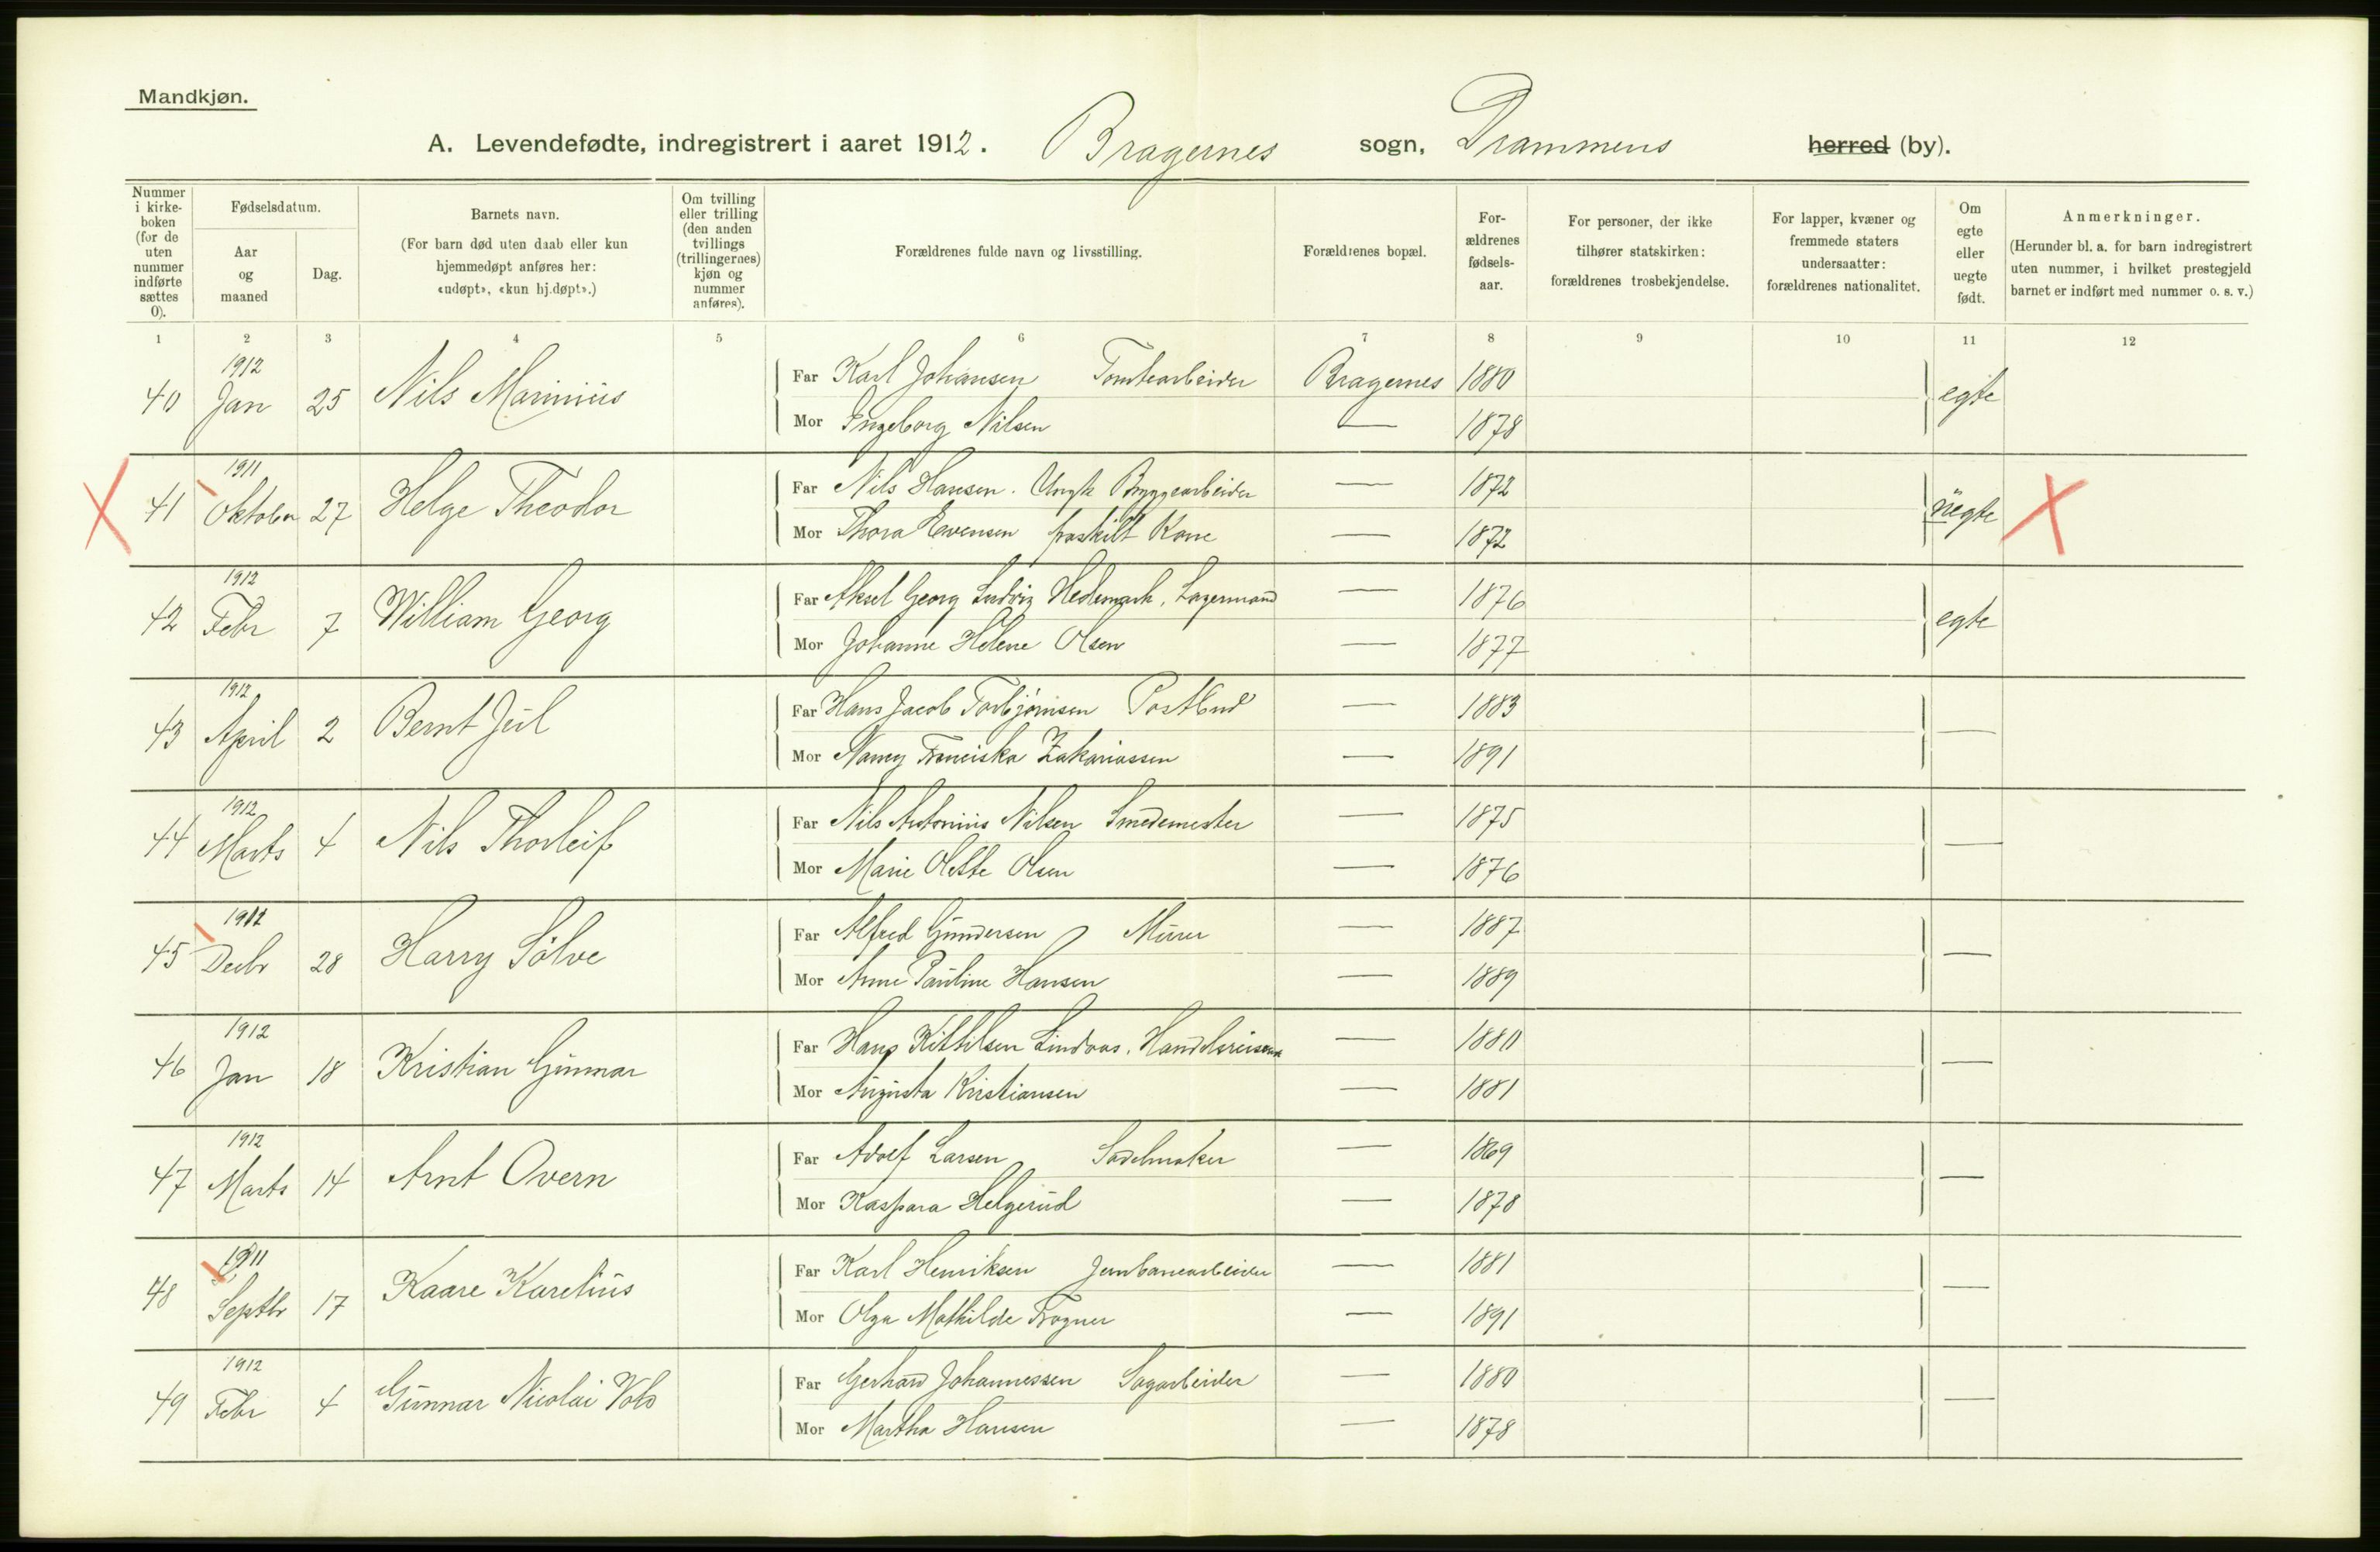 Mandkjøn.
A. Levendefødte, indregistrert i aaret 1912. Bragernes sogn, Drammens herred (by).
Nummer i kirkeboken (for de uten nummer indførte sættes 0).
Fødselsdatum.
Aar og maaned
Dag.
Barnets navn.
(For barn død uten daab eller kun hjemmedøpt anføres her: «udøpt», «kun hj.døpt».)
Om tvilling eller trilling (den anden tvillings (trillingernes) kjøn og nummer anføres).
Forældrenes fulde navn og livsstilling.
Forældrenes bopæl.
Forældrenes fødselsaar.
For personer, der ikke tilhører statskirken: forældrenes trosbekjendelse.
For lapper, kvæner og fremmede staters undersaatter: forældrenes nationalitet.
Om egte eller uegte født.
Anmerkninger.
(Herunder bl. a. for barn indregistrert uten nummer, i hvilket prestegjeld barnet er indført med nummer o. s. v.)
1 2 3 4 5 6 7 8 9 10 11 12
40 1912 Jan 25 Nils Marinius Far Karl Johansen Tomtearbeider Bragernes 1880 egte
Mor Ingeborg Nilsen — 1878
X 41 1911 Oktober 27 Helge Theodor Far Nils Hansen. Ungk Bryggearbeider — 1872 üegte X
Mor Thora Evensen fraskilt Kone — 1872
42 1912 Febr 7 William Georg Far Aksel Georg Ludvig Hedemark, Lagermand — 1876 egte
Mor Johanne Helene Olsen — 1877
43 1912 April 2 Bernt Jul Far Hans Jacob Torbjørnsen Postbud — 1883 —
Mor Nancy Franciska Zakariassen — 1891
44 1912 Marts 4 Nils Thorleif Far Nils Antonius Nilsen Smedemester — 1875 —
Mor Marie Olette Olsen — 1876
45 1912 Decbr 28 Harry Sølve Far Alfred Gundersen Murer — 1887 —
Mor Anne Pauline Hansen — 1889
46 1912 Jan 18 Kristian Gunnar Far Hans Kittilsen Lindaas. Handelsreisende — 1880 —
Mor Augusta Kristiansen — 1881
47 1912 Marts 14 Arnt Overn Far Adolf Larsen Sadelmaker — 1869 —
Mor Kaspara Helgerud — 1878
48 1911 Septbr 17 Kaare Karelius Far Karl Henriksen Jernbanearbeider — 1881 —
Mor Olga Mathilde Frogner — 1891
49 1912 Febr 4 Gunnar Nicolai Volo Far Gerhard Johannessen Sagarbeider — 1880 —
Mor Martha Hansen — 1878